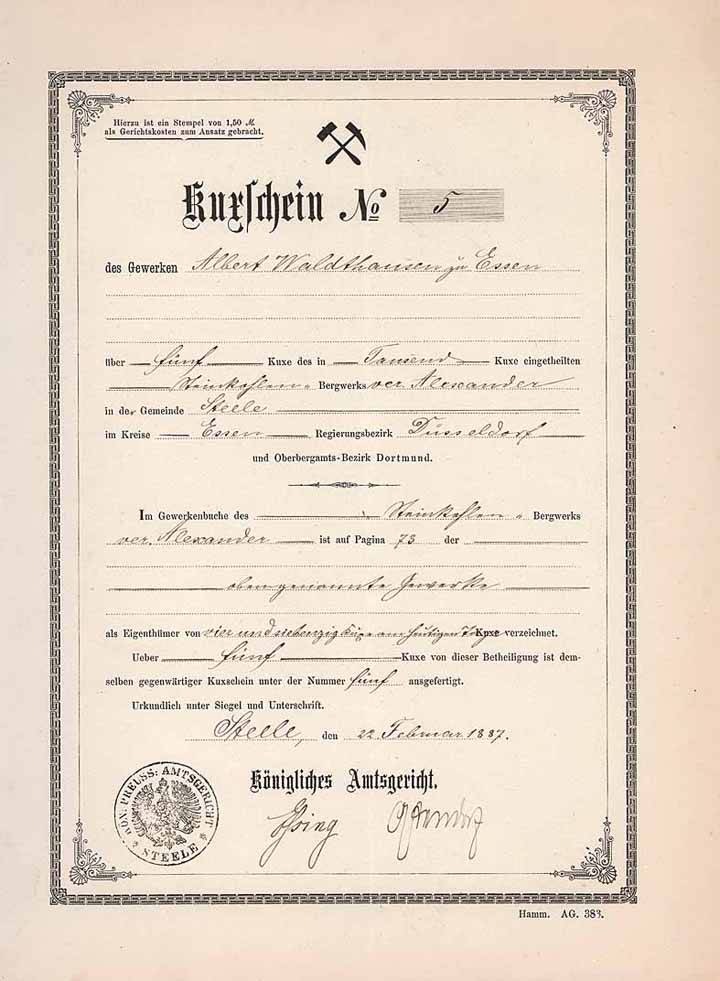 Hierzu ist ein Stempel von 1,50 M
als Gerichtskosten zum Ansatz gebracht.
Kuxschein No 5
des Gewerken Albert Waldthausen zu Essen
über fünf Kuxe des in Tausend Kuxe eingetheilten
Steinkohlen- Bergwerks ver. Alexander
in der Gemeinde Steele
im Kreise Essen Regierungsbezirk Düsseldorf
und Oberbergamts-Bezirk Dortmund.
Im Gewerkenbuche des Steinkohlen- Bergwerks
ver. Alexander ist auf Pagina 73 der
obengenannte Gewerke
als Eigenthümer von vier und siebenzig Kuxe am heutigen Tage Kuxe verzeichnet.
Ueber fünf Kuxe von dieser Betheiligung ist dem-
selben gegenwärtiger Kuxschein unter der Nummer fünf ausgefertigt.
Urkundlich unter Siegel und Unterschrift.
Steele, den 22 Februar 1887.
Königliches Amtsgericht.
KÖN. PREUSS: AMTSGERICHT
* STEELE *
Hamm. AG. 383.